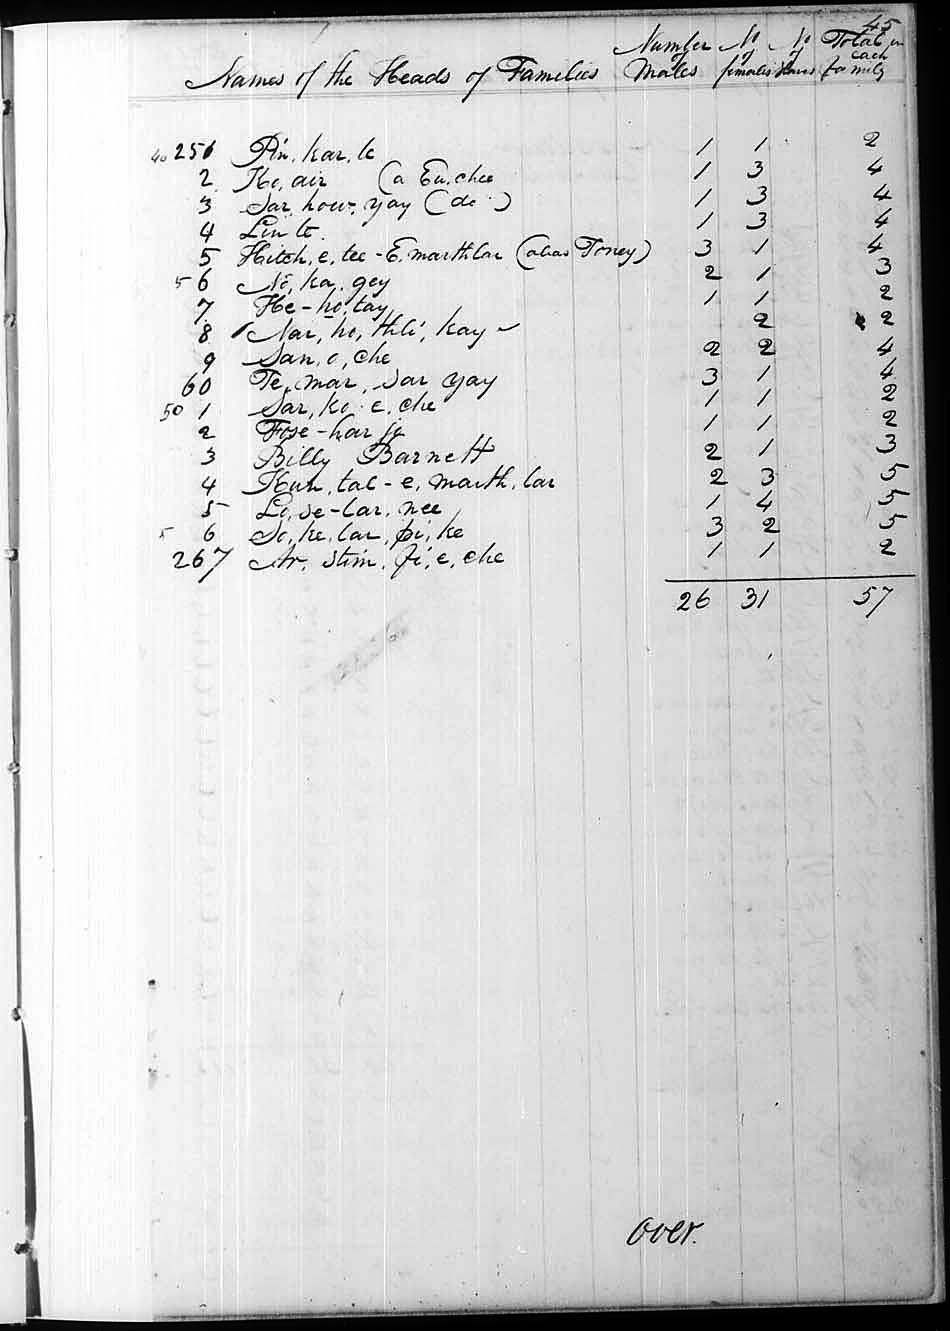 45
Names of the Heads of Families Number of Males No of females No of Slaves Total in each family
40 251 Pin, kar, le 1 1 2
2 Ko, air (a Eu, chee 1 3 4
3 Sar, how, yay (do) 1 3 4
4 Lin te. 1 3 4
5 Hitch, e, tee - E, marthlar (alias Toney) 3 1 4
5 6 No, ka, gey 2 1 3
7 He - ho, tay 1 1 2
8 Nar, ho, thli, kay 2 2
9 San, o, che 2 2 4
60 Te, mar, sar yay 3 1 4
50 1 Sar, ko, e, che 1 1 2
2 Fose - har jo 1 1 2
3 Billy Barnett 2 1 3
4 Kun, tal - e, marth, lar 2 3 5
5 Lo, se - lar, nee 1 4 5
5 6 So, ke, lar, pi, ke 3 2 5
267 Ar, stim, fi, e, che 1 1 2
26 31 57
over.